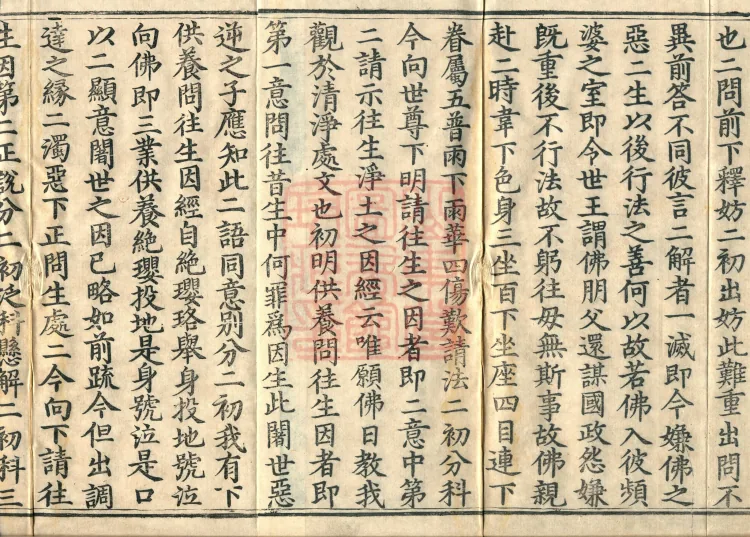 也二問前下釋妨二初出妨此難重出問不
異前答不同彼言二解者一滅即今嫌佛之
惡二生以後行法之善何以故若佛入彼頻
婆之室即令世王謂佛朋父還謀國政怨嫌
既重後不行法故不躬往毋無斯事故佛親
赴二時韋下色身三坐百下坐座四目連下
眷屬五普雨下雨華四傷歎請法二初分科
今向世尊下明請往生之因者即二意中第
二請示往生淨土之因經云唯願佛日教我
觀於清淨處文也初明供養問往生因者即
第一意問往昔生中何罪爲因生此闇世惡
逆之子應知此二語同意别分二初我有下
供養問往生因經自絶瓔珞舉身投地號泣
向佛即三業供養絶瓔投地是身號泣是口
以二顯意闇世之因已略如前䟽今但出調
達之縁二濁惡下正問生處二今向下請往
生因第二正說分二初定科懸解二初科三